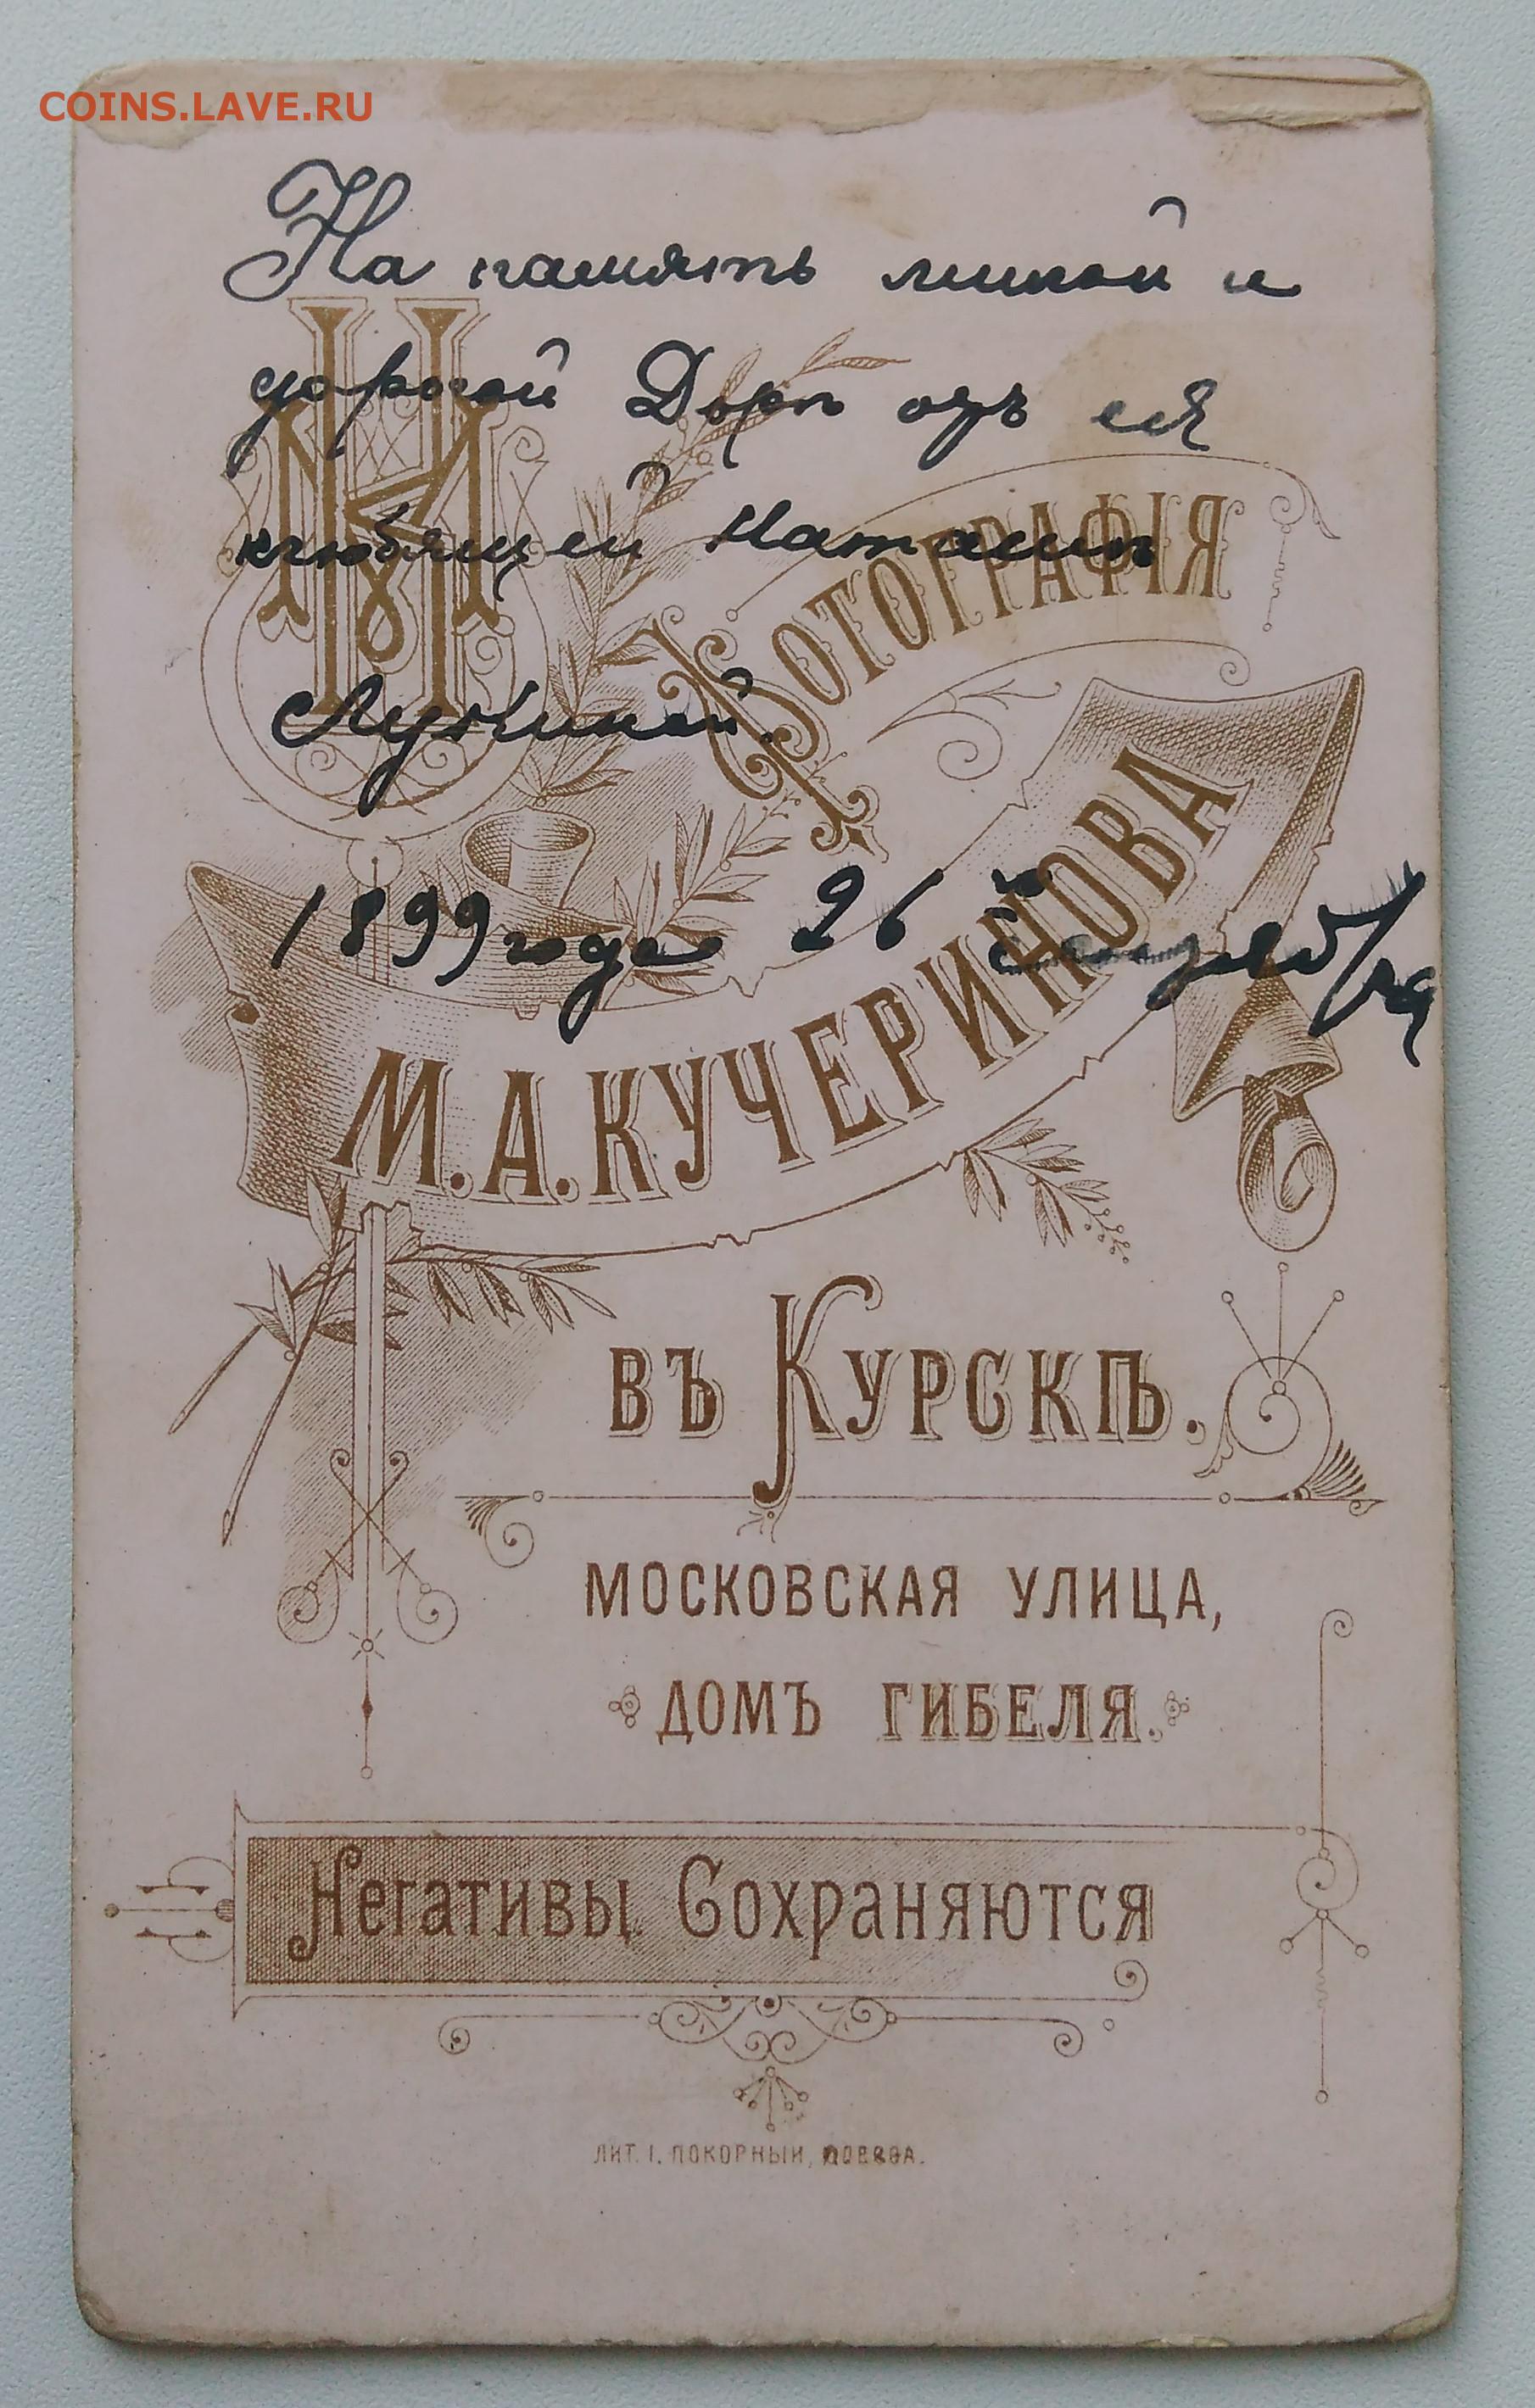 COINS.LAVE.RU
На память милой и
дорогой Дорѣ отъ ея
любящей Наташи
Лу
1899 года 26
ФОТОГРАФІЯ
М.А.КУЧЕРИНОВА
ВЪ КУРСКѢ.
МОСКОВСКАЯ УЛИЦА,
ДОМЪ ГИБЕЛЯ.
Негативы Сохраняются
ЛИТ. І. ПОКОРНЫЙ, ОДЕССА.